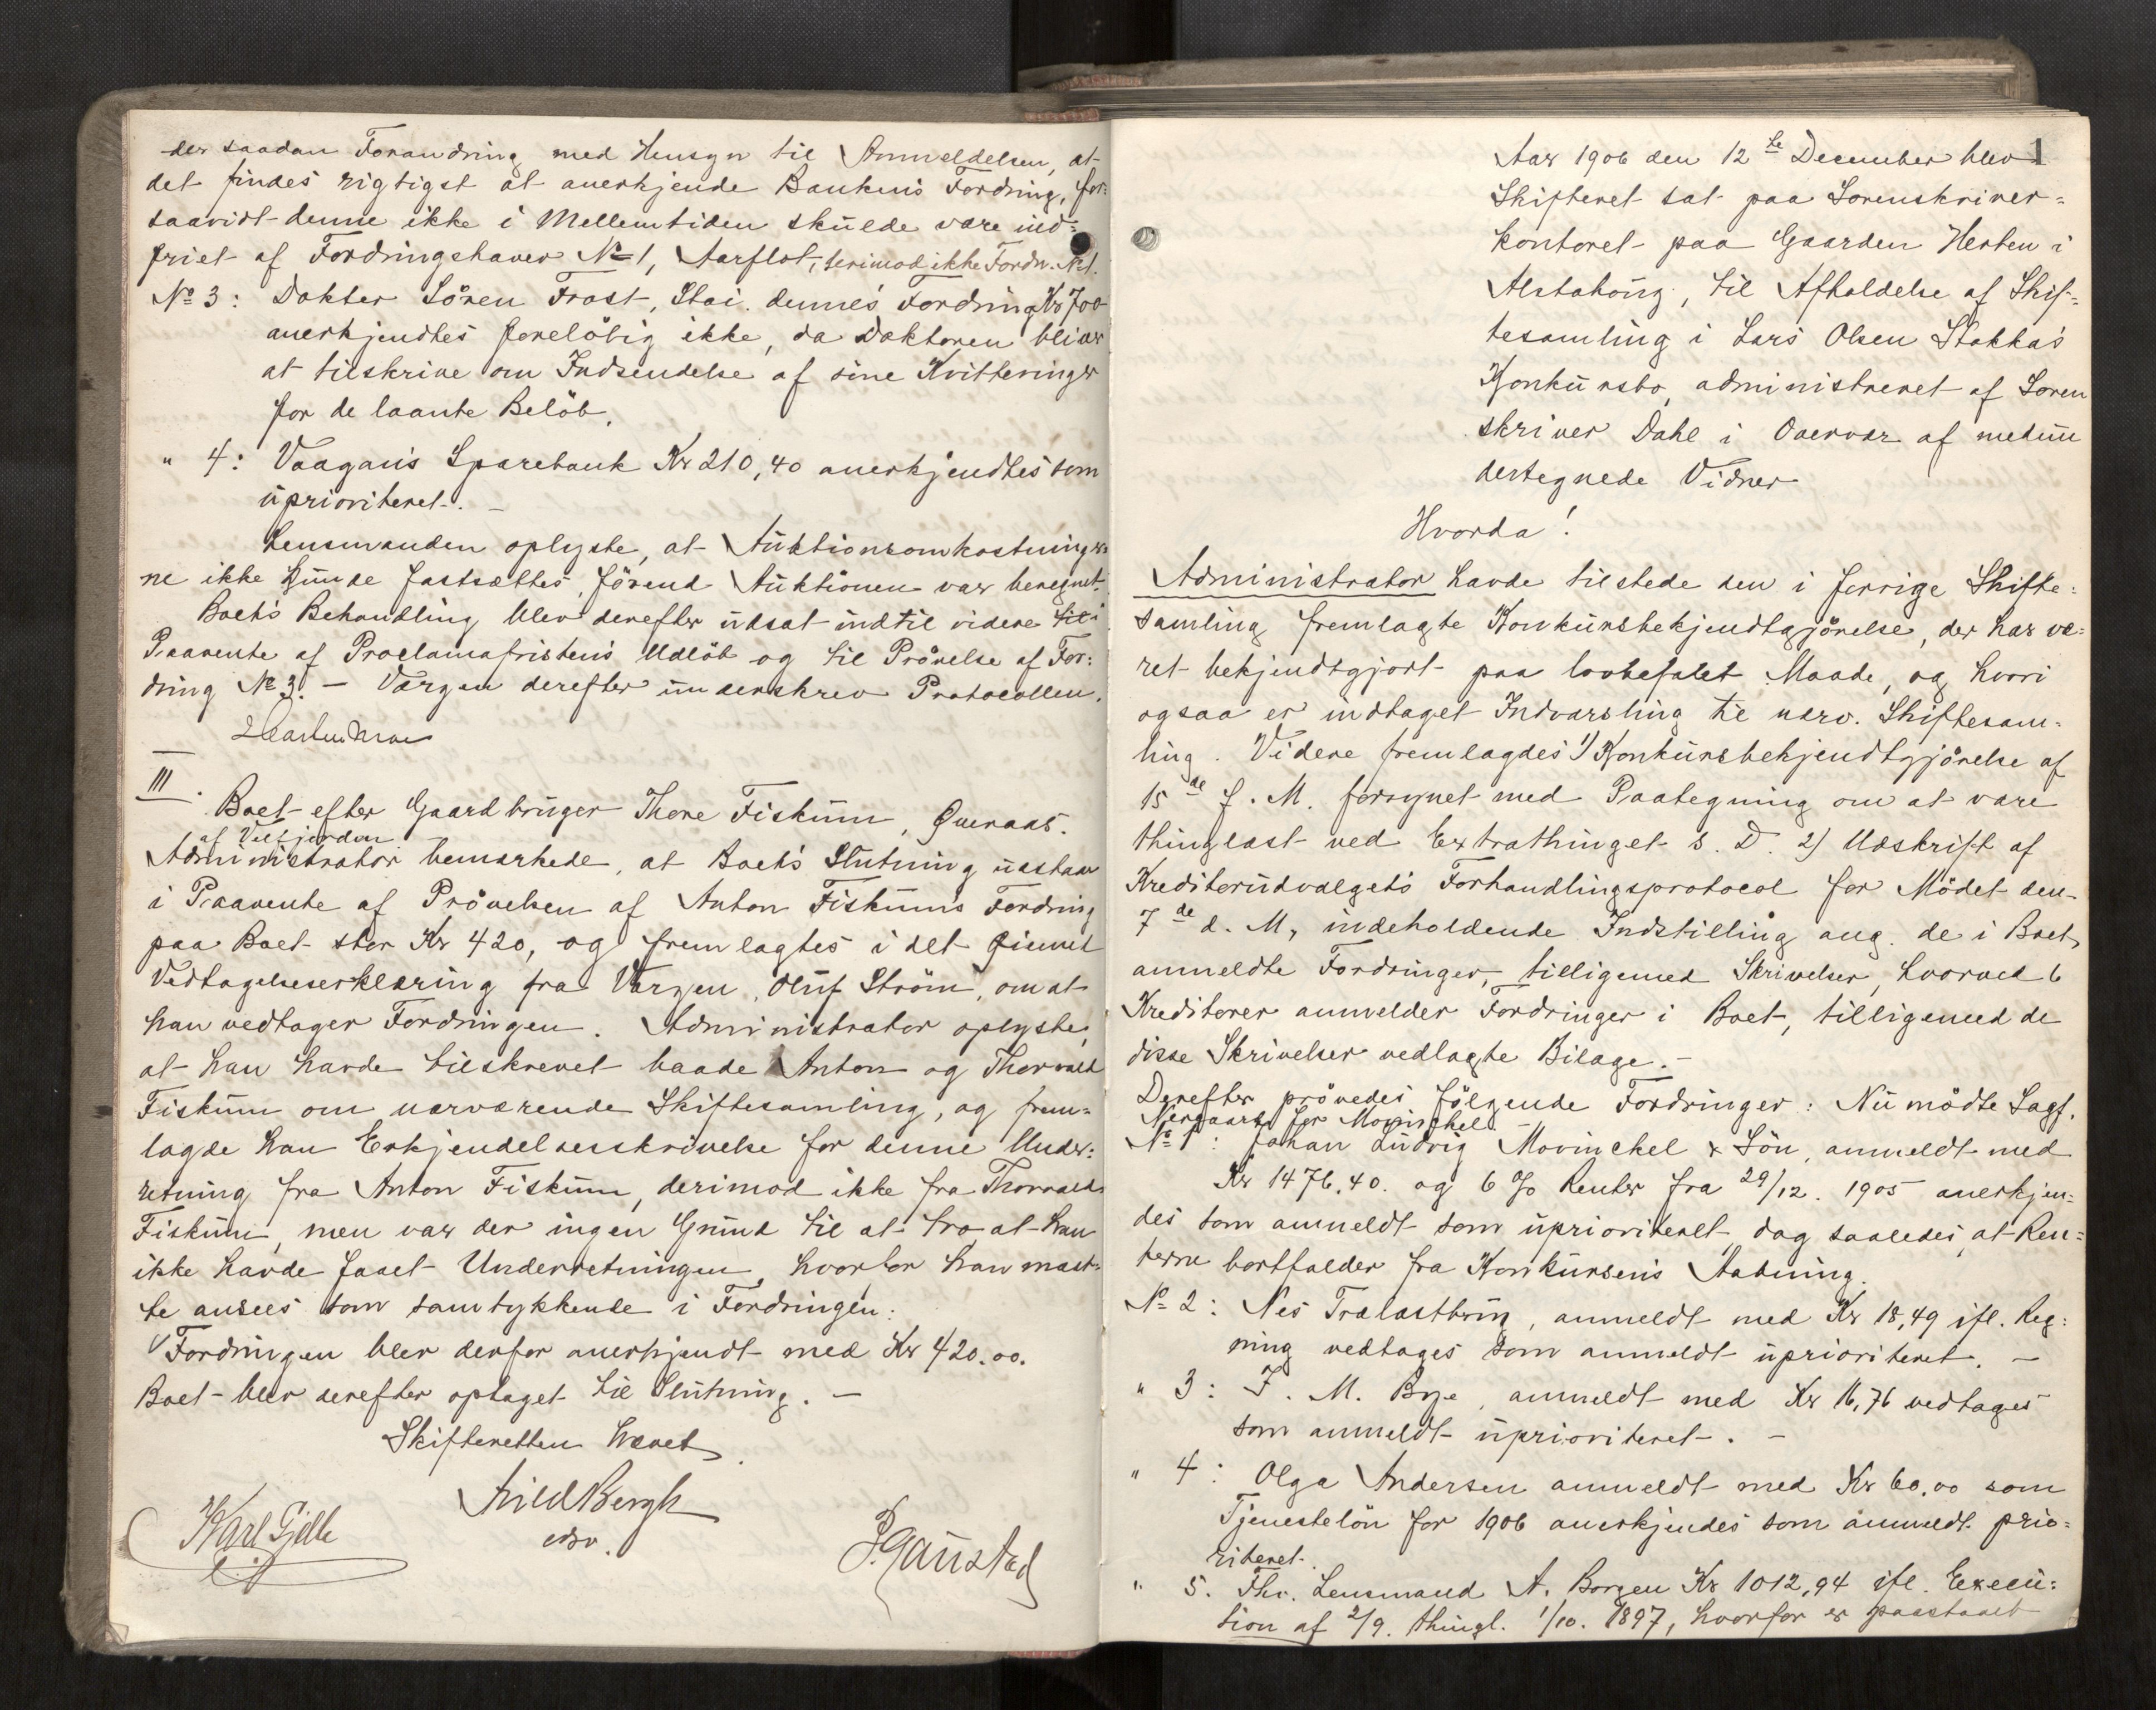 der saadan Forandring med Hensyn til Anmeldelsen, at
det findes rigtigst at anerkjende Bankens Fordring, for=
saavidt denne ikke i Mellemtiden skulde være ind=
friet af Fordringshaver No 1, Aarflot, derimod ikke Fordr. No 1.
No 3: Dokter Sören Frost, Stai. dennes Fordring Kr 700
anerkjendtes foreløbig ikke, da Doktoren bliver
at tilskrive om Indsendelse af sine Kvitteringer
for de laante Beløb.
" 4: Vaagans Sparebank Kr 210,40 anerkjendtes som
uprioriteret. —
Lensmanden oplyste, at Auktionsomkostninger=
ne ikke kunde fastsættes, førend Auktionen var beregnet.
Boets Behandling blev derefter udsat indtil videre til
Paavente af Proclamafristens Udløb og til Prøvelse af For=
dring No 3. — Værgen derefter underskrev Protocollen.
III.
Boet efter Gaardbruger Thore Fiskum, Øueraas.
af Velfjorden
Administrator bemærkede, at Boets Slutning udstaar
i Paavente af Prøvelsen af Anton Fiskums Fordring
paa Boet stor Kr 420, og fremlagtes i det Øiemed
Vedtagelseserklæring fra Værgen, Oluf Strøm, om at
han vedtager Fordringen. Administrator oplyste,
at han havde tilskrevet baade Anton og Thorvald
Fiskum om nærværende Skiftesamling, og frem=
lagde han Erkjendelsesskrivelse for denne Under=
retning fra Anton Fiskum, derimod ikke fra Thorvald
Fiskum, men var der ingen Grund til at tro at han
ikke havde faaet Underretningen, hvorfor han maat=
te ansees som samtykkende i Fordringen.
Fordringen blev derfor anerkjendt med Kr 420.00.
Boet blev derefter optaget til Slutning. —
Skifteretten hævet
Arild Bergh
edsv.
Karl Gjelle
P. Gaustad
1
Aar 1906 den 12te December blev
Skifteret sat paa Sorenskriver=
kontoret paa Gaarden Horten i
Alstahoug, til Afholdelse af Skif=
tesamling i Lars Olsen Stokkas
Konkursbo, administreret af Soren
skriver Dahl i Overvær af medun
dertegnede Vidner
Hvorda!
Administrator havde tilstede den i forrige Skifte=
samling fremlagte Konkursbekjendtgjørelse, der har væ=
ret bekjendtgjort paa lovbefalet Maade, og hvori
ogsaa er indtaget Indvarsling til nærv. Skiftesam=
ling. Videre fremlagdes 1) Konkursbekjendtgjørelse af
15de f. M. forsynet med Paategning om at være
thinglæst ved Extrathinget s. D. 2) Udskrift af
Kreditorudvalgets Forhandlingsprotocol for Mödet den
7de d. M, indeholdende Indstilling ang. de i Boet
anmeldte Fordringer, tilligemed Skrivelser, hvorved 6
Kreditorer anmelder Fordringer i Boet, tilligemed de
disse Skrivelser vedlagte Bilage. —
Derefter prövedes fölgende Fordringer: Nu mödte Sagf.
Nergaard for Mowinckel —
No 1: Johan Ludvig Movinckel & Sön, anmeldt med
Kr 1476.40. og 6 % Renter fra 29/12. 1905 anerkjen=
des som anmeldt som uprioriteret, dog saaledes, at Ren=
terne bortfalder fra Konkursens Aabning.
No 2: Nes Trælastbrug, anmeldt med Kr 18,49 ifl. Reg=
ning vedtages som anmeldt uprioriteret. —
" 3: J. M. Bye, anmeldt med Kr 16,76 vedtages
som anmeldt uprioriteret. —
" 4: Olga Andersen anmeldt med Kr 60.00 som
Tjenestelön for 1906 anerkjendes som anmeldt prio=
riteret.
" 5. Fhv. Lensmand A. Borgen Kr 1012,94 ifl. Execu=
tion af 2/9. thingl. 1/10. 1897, hvorfor er paastaaet